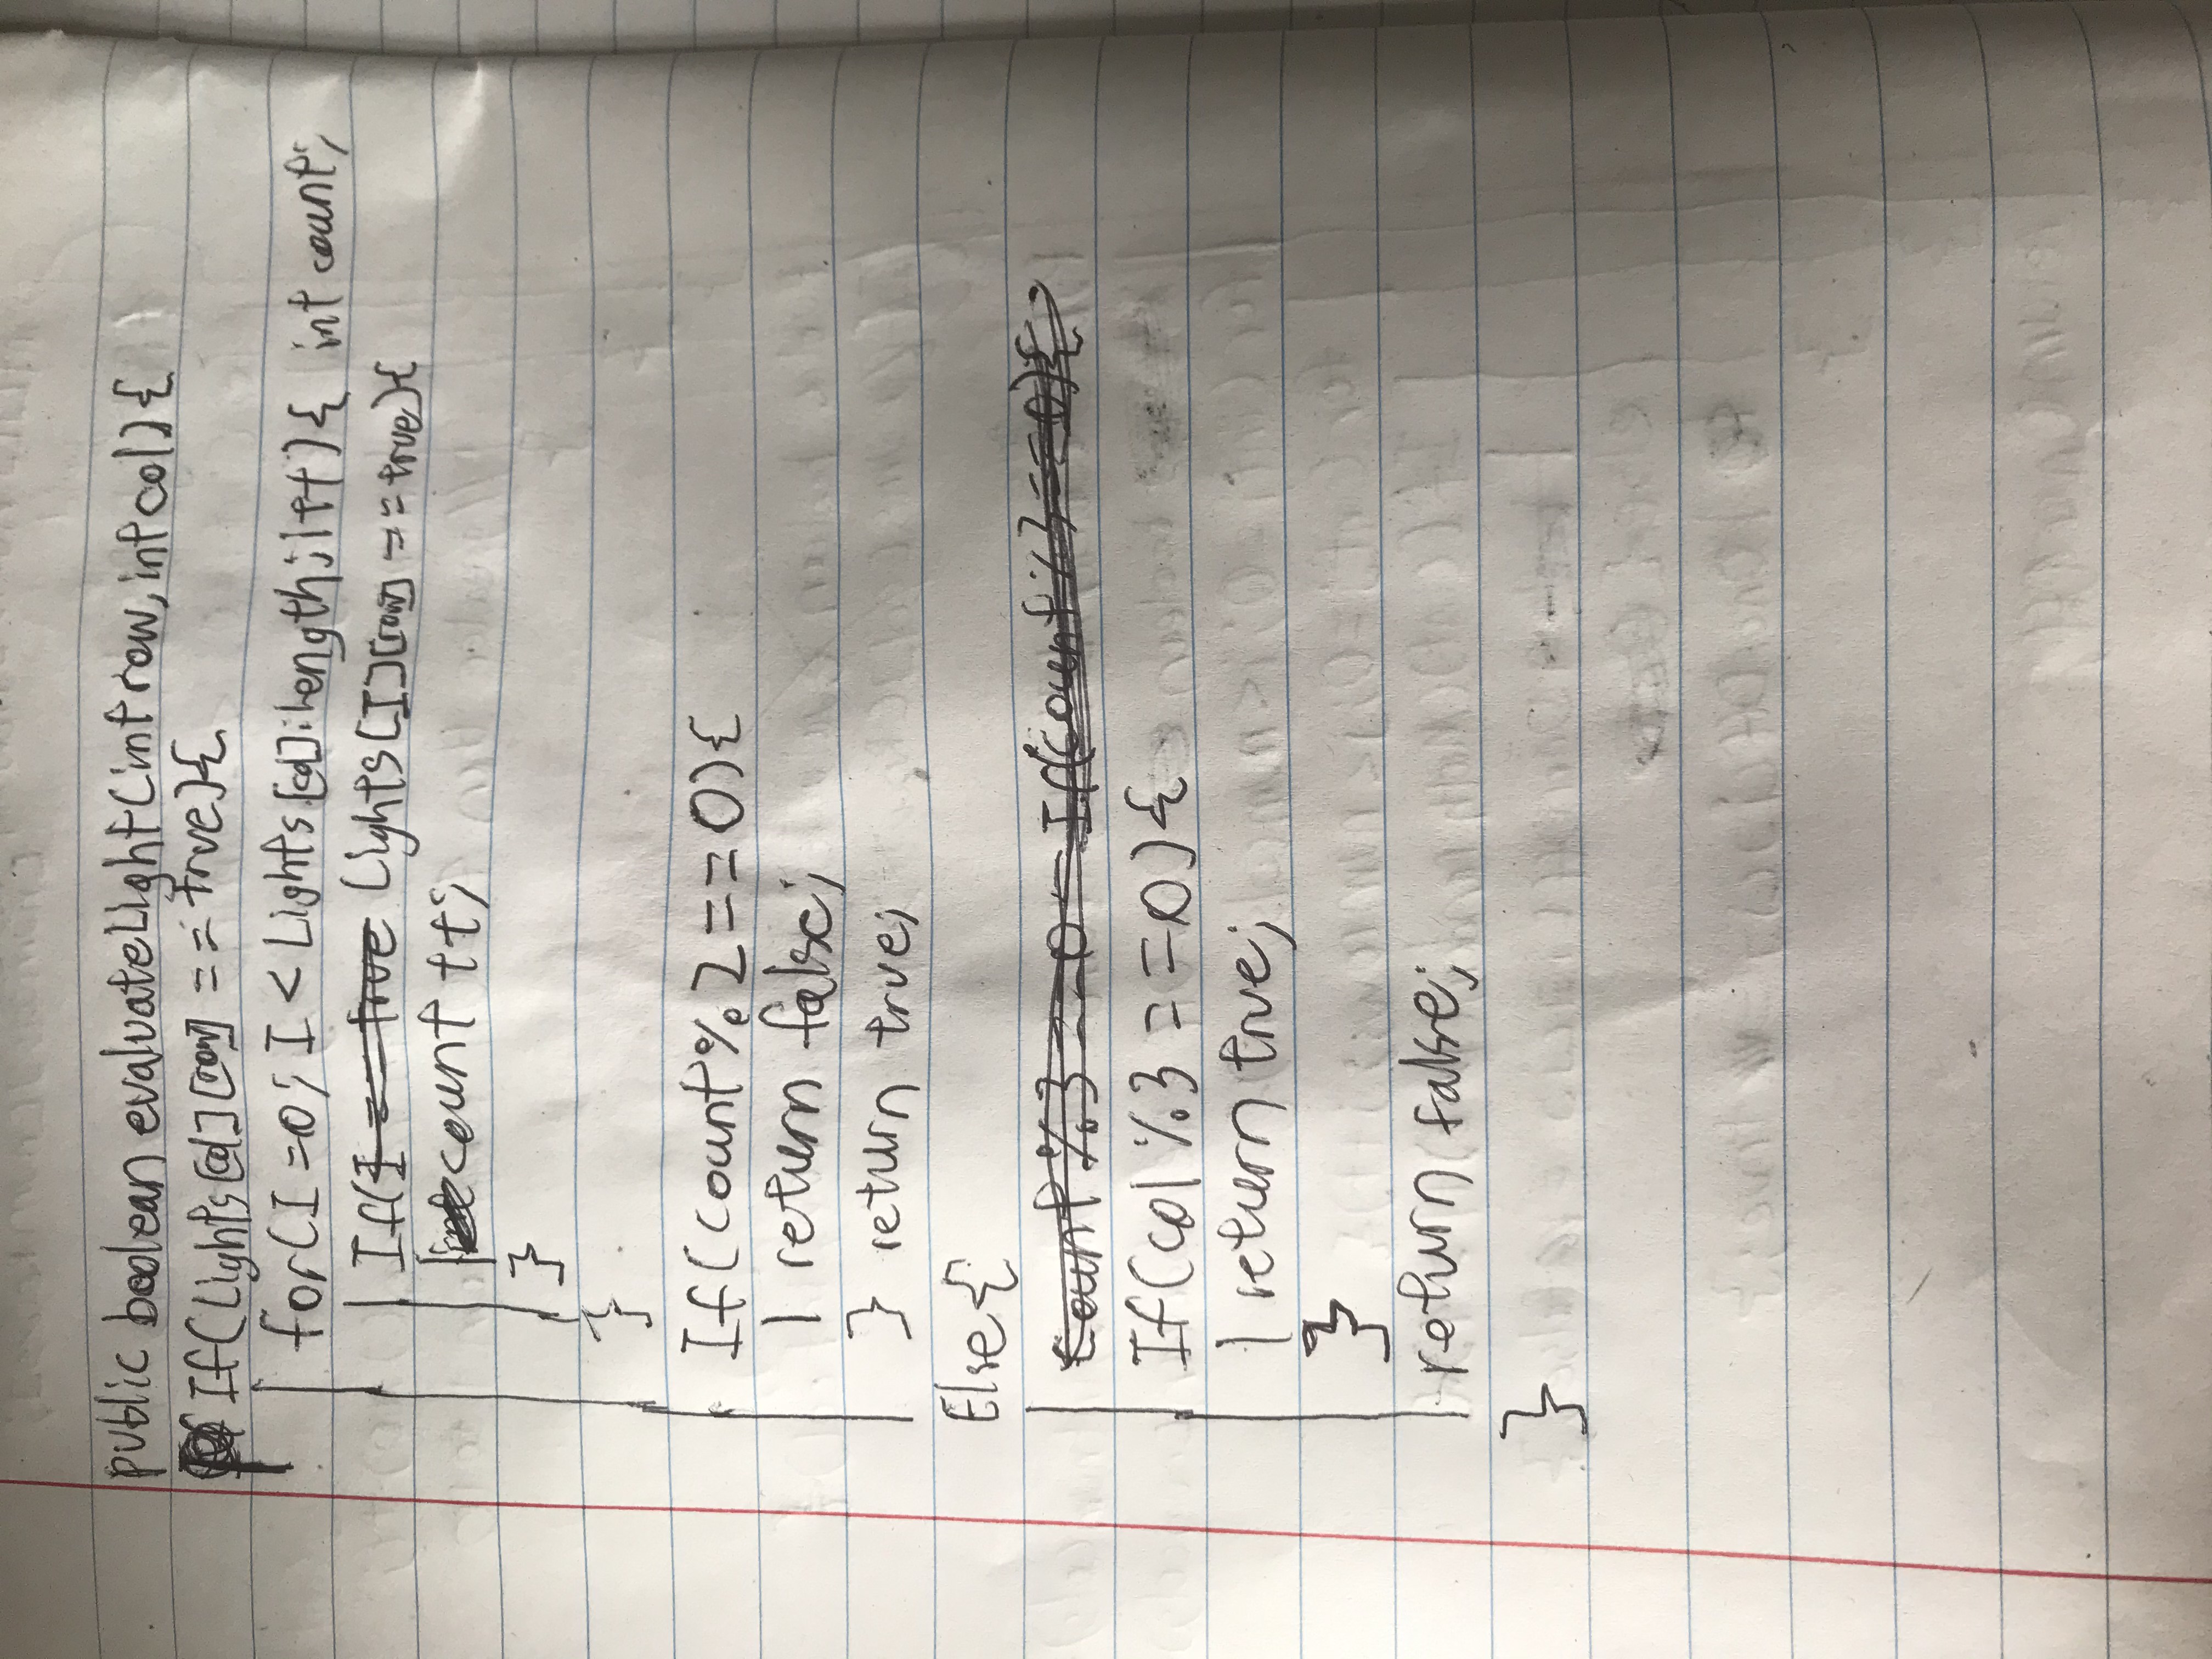 public boolean evaluateLight(int row, int col){
If(Lights[col][row] == true){
for(I=0; I < Lights[col].length; I++){ int count;
If(I == true Lights[I][row] == true){
count ++;
}
}
If(count%2==0){
return false;
} return true;
Else{
count %3 ==0 If(count%3==0){
If(col %3 ==0){
return true;
}
return false;
}